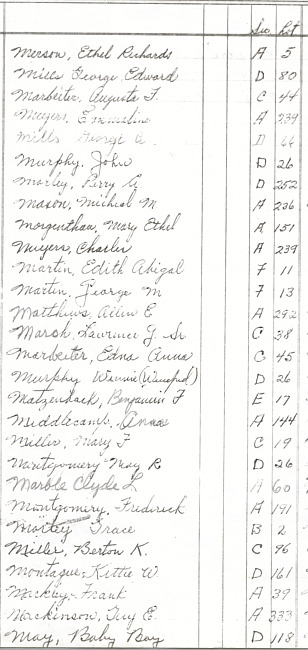 Sec Lot
Merson, Ethel Richards A 5
Mills George Edward D 80
Marbeiter, Augusta F. C 44
Meyers, Emmaline A 239
Mills George D
Murphy, John D 26
Morley, Perry A D 252
Mason, Micheal M A 226
Morgenthau, Mary Ethel A 151
Meyers, Charles A 239
Martin, Edith Abigal F 11
Martin, George M F 13
Matthews, E A 292
Marsh, Lawrence J. Sr C 38
Marbeiter, Edna Anna C 45
Murphy Winnie (Winnifred) D 26
Matzenbach, Benjamin F E 17
Middlecamp, Anna A 144
Miller, Mary F C 19
Montgomery May R D 26
Marble Clyde L A 60
Montgomery, Frederick A 191
Grace B 2
Miller, Berton K. C 96
Montague, Kittie W. D 161
Mackey, Frank A 39
Mackinson, Guy E. A 333
May, Baby Boy D 118